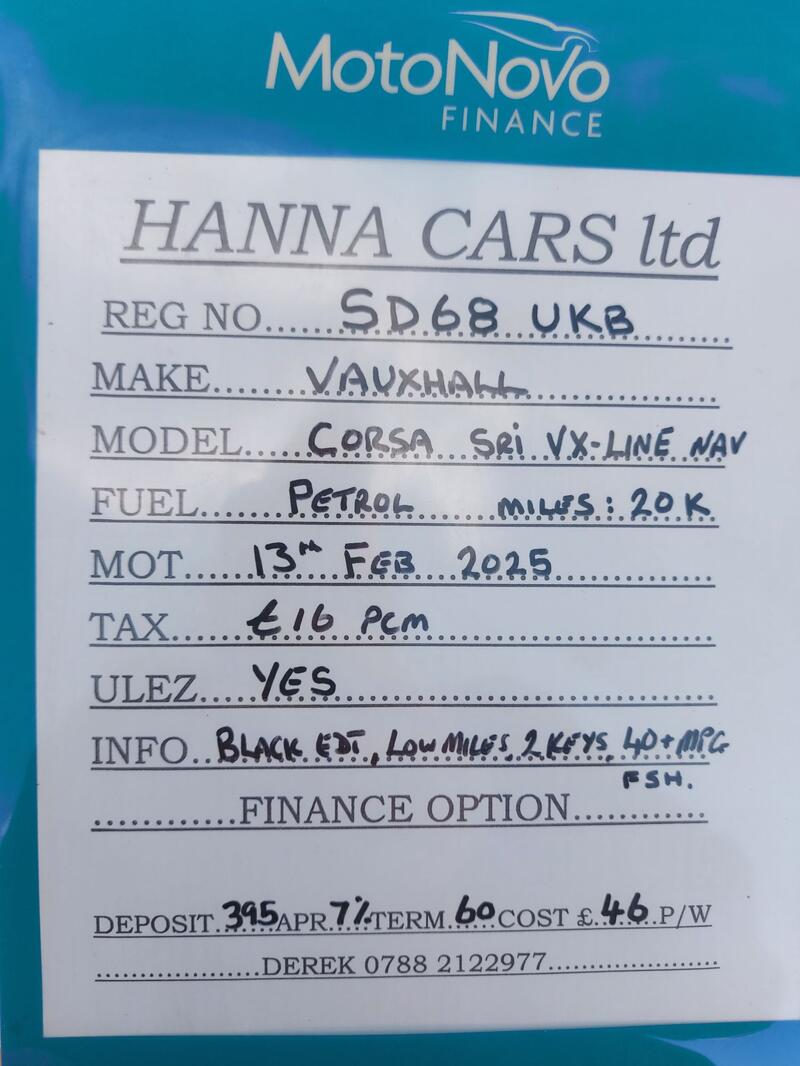 MotoNovo
FINANCE
HANNA CARS ltd
REG NO......SD68 UKB
MAKE......VAUXHALL
MODEL......CORSA SRi VX-LINE NAV
FUEL......PETROL MILES: 20K
MOT......13TH FEB 2025
TAX......£16 PCM
ULEZ......YES
INFO..BLACK EDT, LOW MILES, 2 KEYS, 40+MPG
FSH.
............FINANCE OPTION............
DEPOSIT.395APR.7%TERM.60COST £.46.P/W
..................DEREK 0788 2122977..................